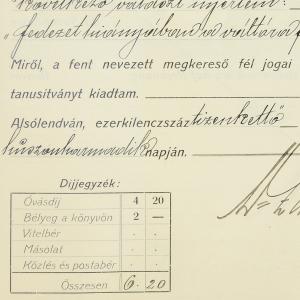 következő választ nyertem:
"fedezet hiányában a váltó
Miről, a fent nevezett megkereső fél jogai
tanusítványt kiadtam.
Alsólendván, ezerkilenczszáz tizenkettő
huszonharmadik napján.
Díjjegyzék:
Óvásdíj 4 20
Bélyeg a könyvön 2 —
Vitelbér . .
Másolat . .
Közlés és postabér . .
Összesen 6 . 20